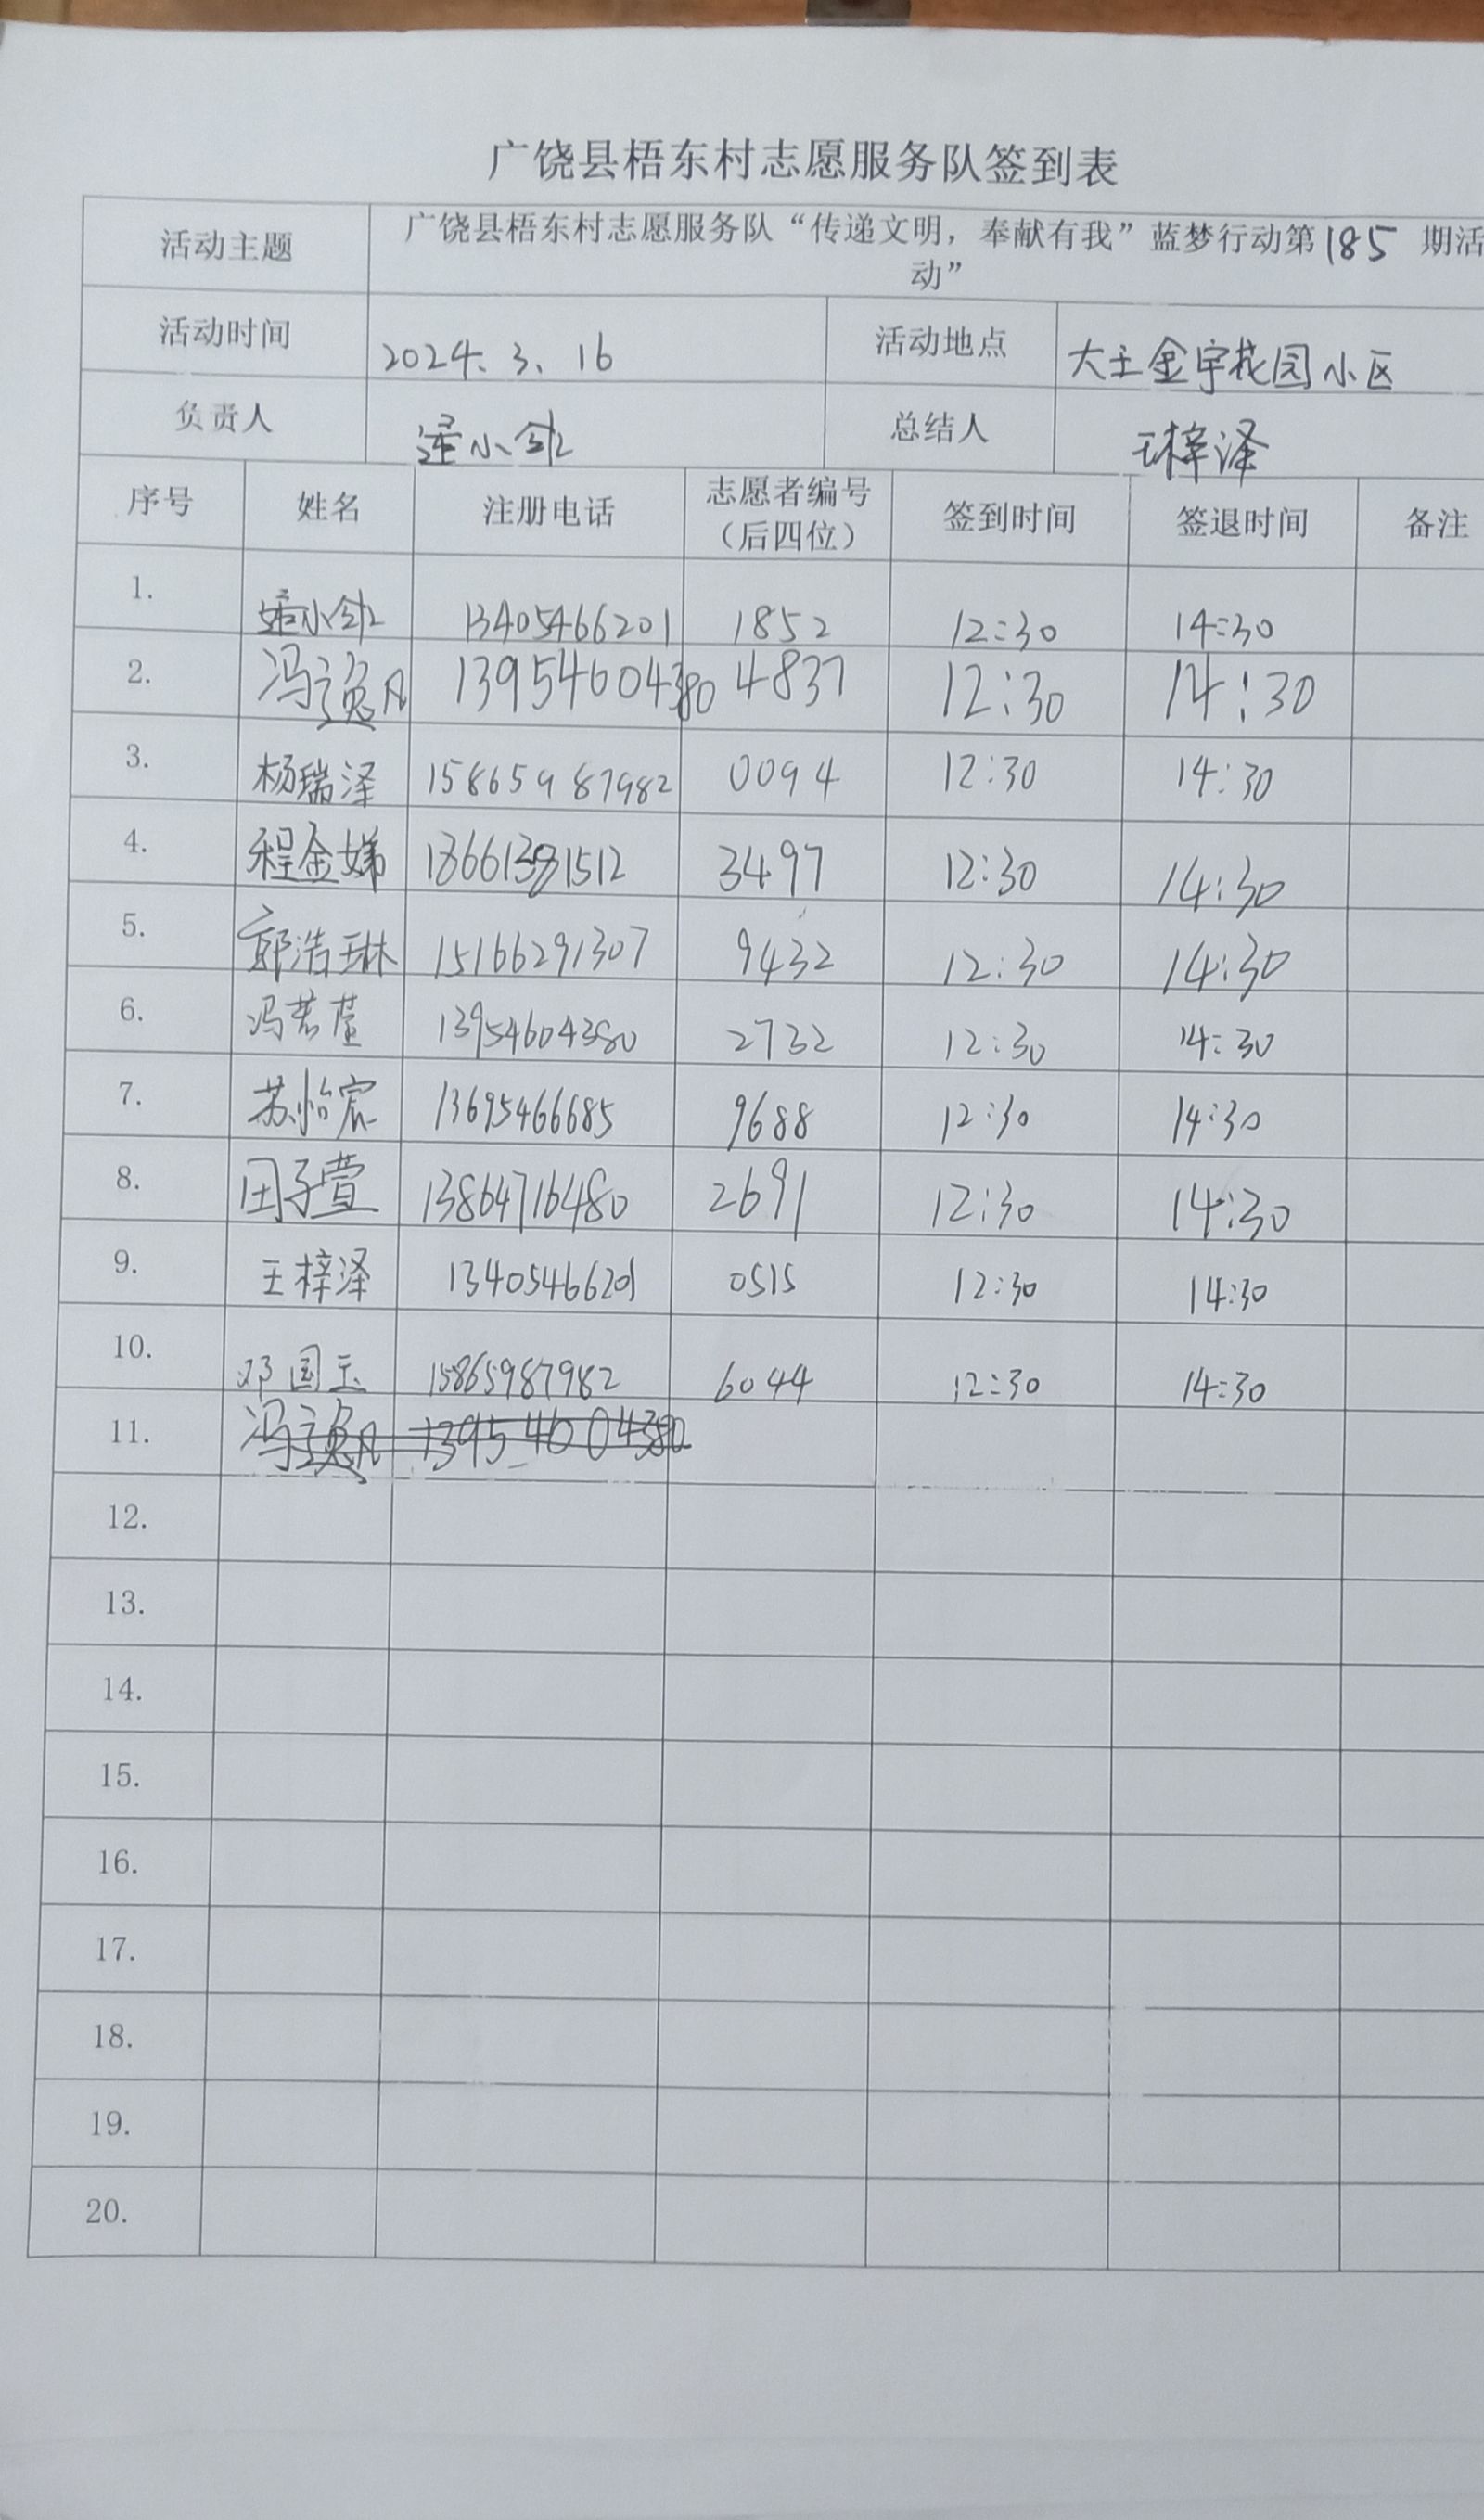 广饶县梧东村志愿服务队签到表
活动主题 广饶县梧东村志愿服务队“传递文明，奉献有我”蓝梦行动第185 期活
动”
活动时间 2024.3.16 活动地点 大王金宇花园小区
负责人 总结人 王梓泽
序号 姓名 注册电话 志愿者编号（后四位） 签到时间 签退时间 备注
1. 13405466201 1852 12:30 14:30
2. 冯逸凡 13954604380 4837 12:30 14:30
3. 杨瑞泽 15865987982 0094 12:30 14:30
4. 程金娣 12:30 3497 14:30
5. 郭浩琳 15166291307 9432 12:30 14:30
6. 冯若萱 13954604380 2732 12:30 14:30
7. 苏怡宸 13695466685 9688 12:30 14:30
8. 田子萱 13864716480 2691 12:30 14:30
9. 王梓泽 13405466201 0515 12:30 14:30
10. 邓国玉 15865987982 6044 12:30 14:30
11. 13954604380
12.
13.
14.
15.
16.
17.
18.
19.
20.